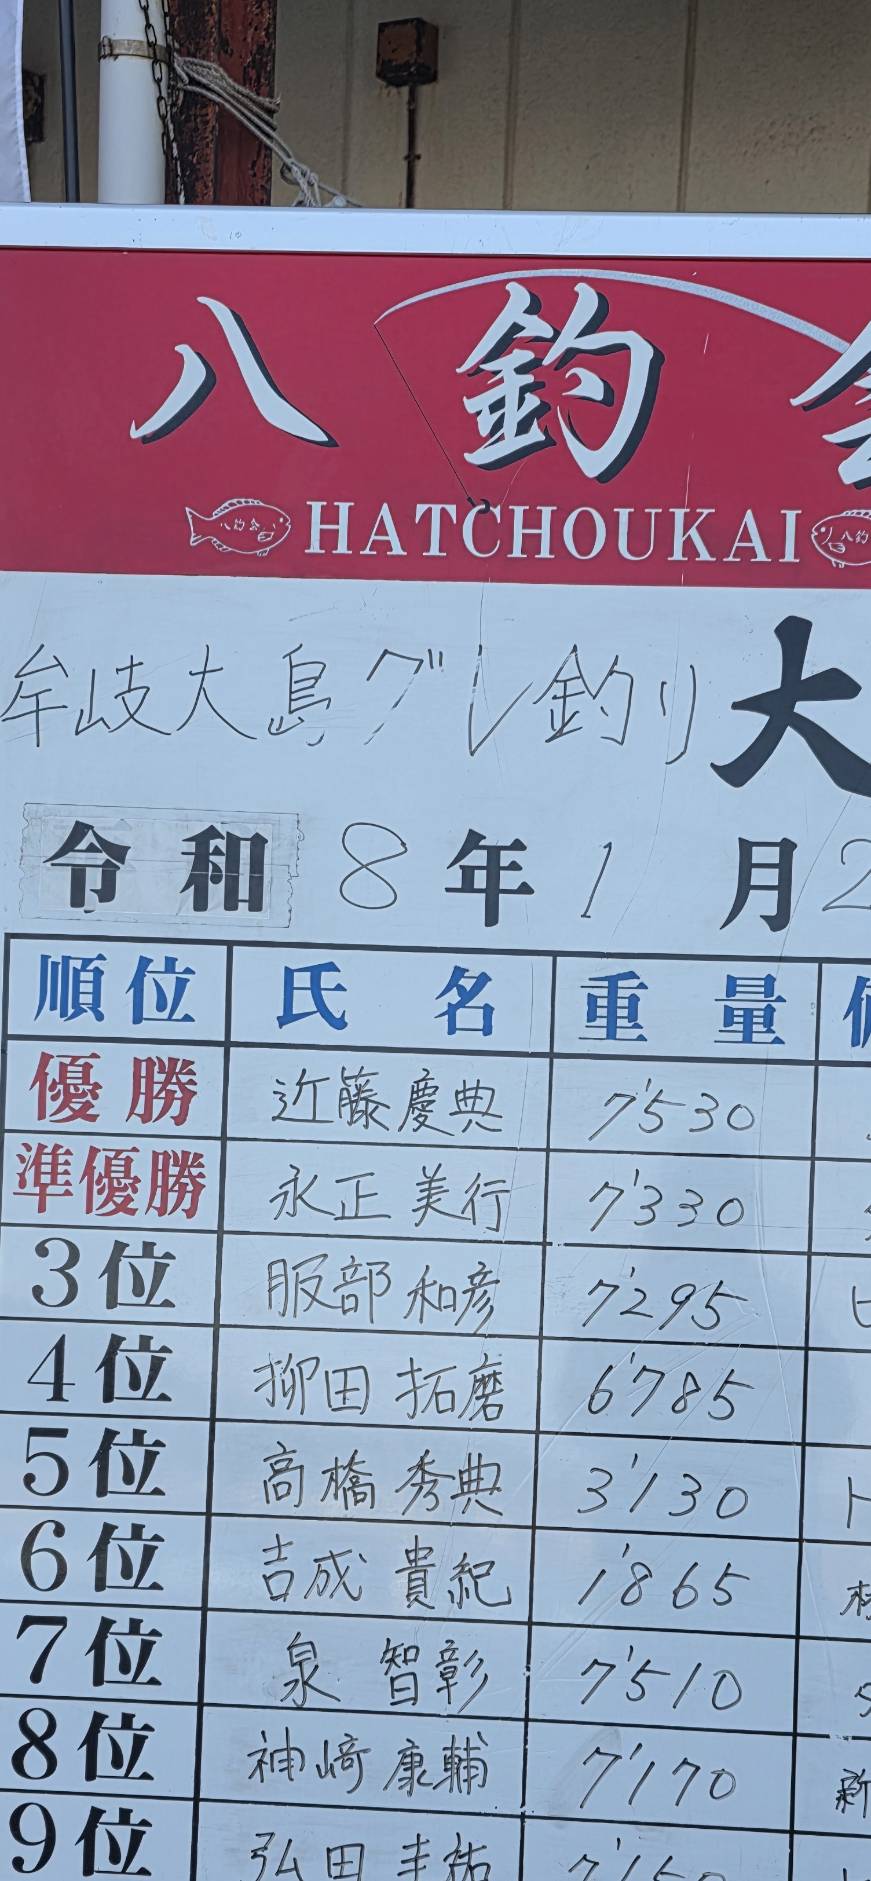 八釣会
HATCHOUKAI
牟岐大島グレ釣り 大
令和 8年 1月 2
順位 氏名 重量
優勝 近藤慶典 7'530
準優勝 永正美行 7'330
3位 服部和彦 7'295
4位 柳田拓磨 6'785
5位 高橋秀典 3'130
6位 吉成貴紀 1'865
7位 泉智彰 7'510
8位 神崎康輔 7'170
9位 弘田圭祐